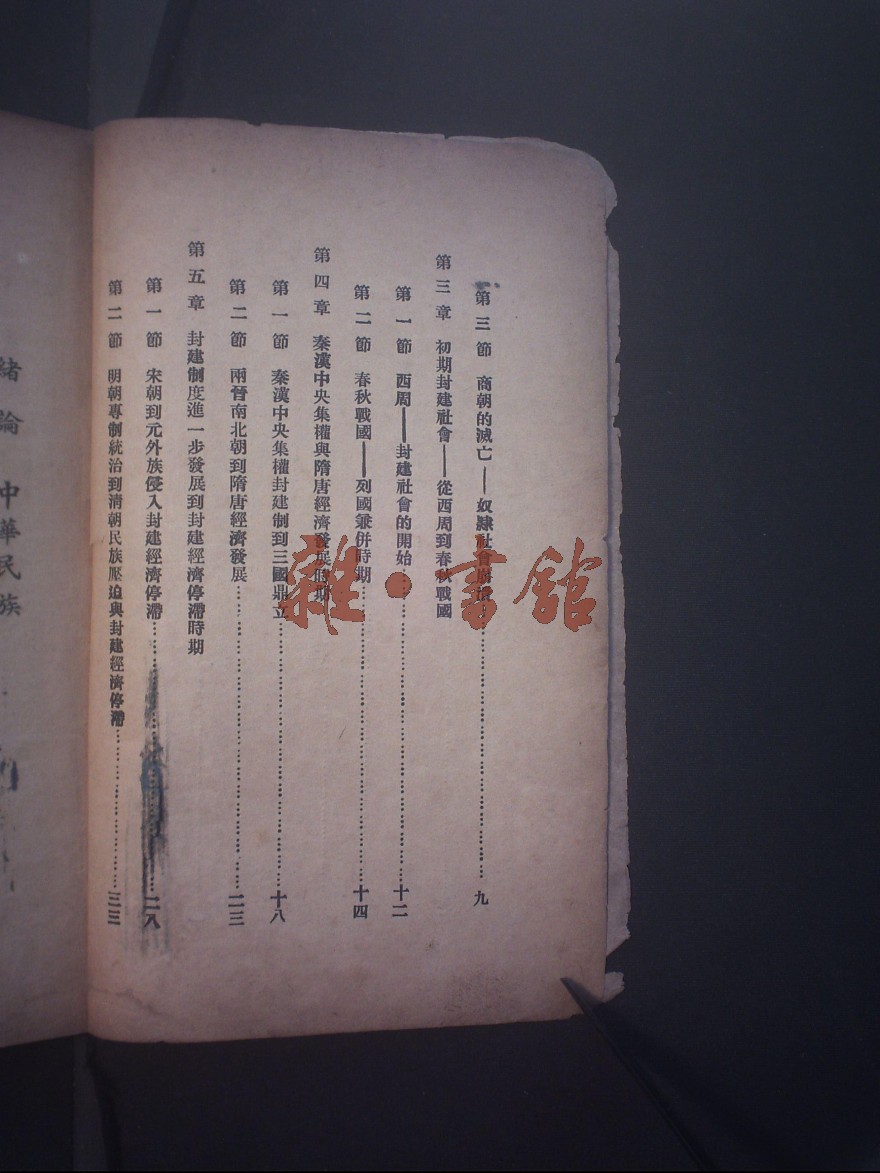 第三節　商朝的滅亡——奴隸社會崩潰…………九
第三章　初期封建社會——從西周到春秋戰國
第一節　西周——封建社會的開始…………十二
第二節　春秋戰國——列國兼併時期…………十四
第四章　秦漢中央集權與隋唐經濟發展時期
第一節　秦漢中央集權封建制到三國鼎立…………十八
第二節　兩晉南北朝到隋唐經濟發展…………二三
第五章　封建制度進一步發展到封建經濟停滯時期
第一節　宋朝到元外族侵入封建經濟停滯…………二八
第二節　明朝專制統治到清朝民族壓迫與封建經濟停滯…………三三
緒論　中華民族
雜·書館